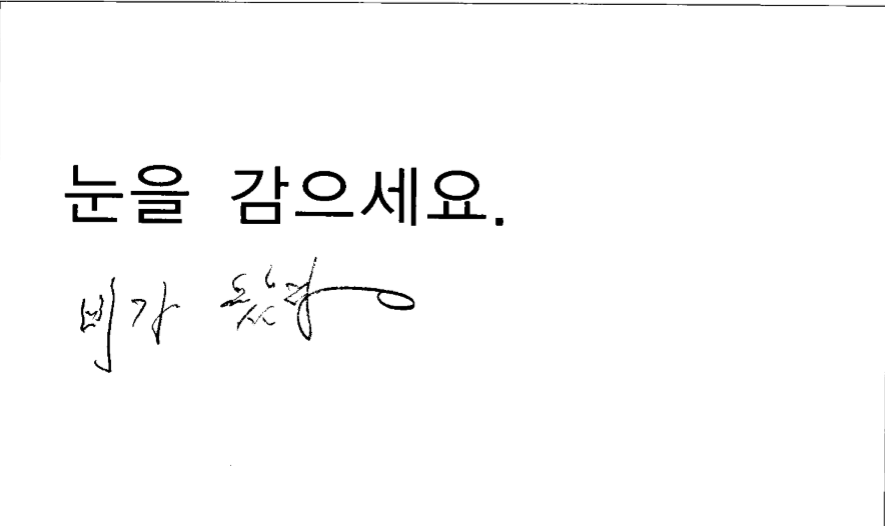 눈을 감으세요.
비가 왔다